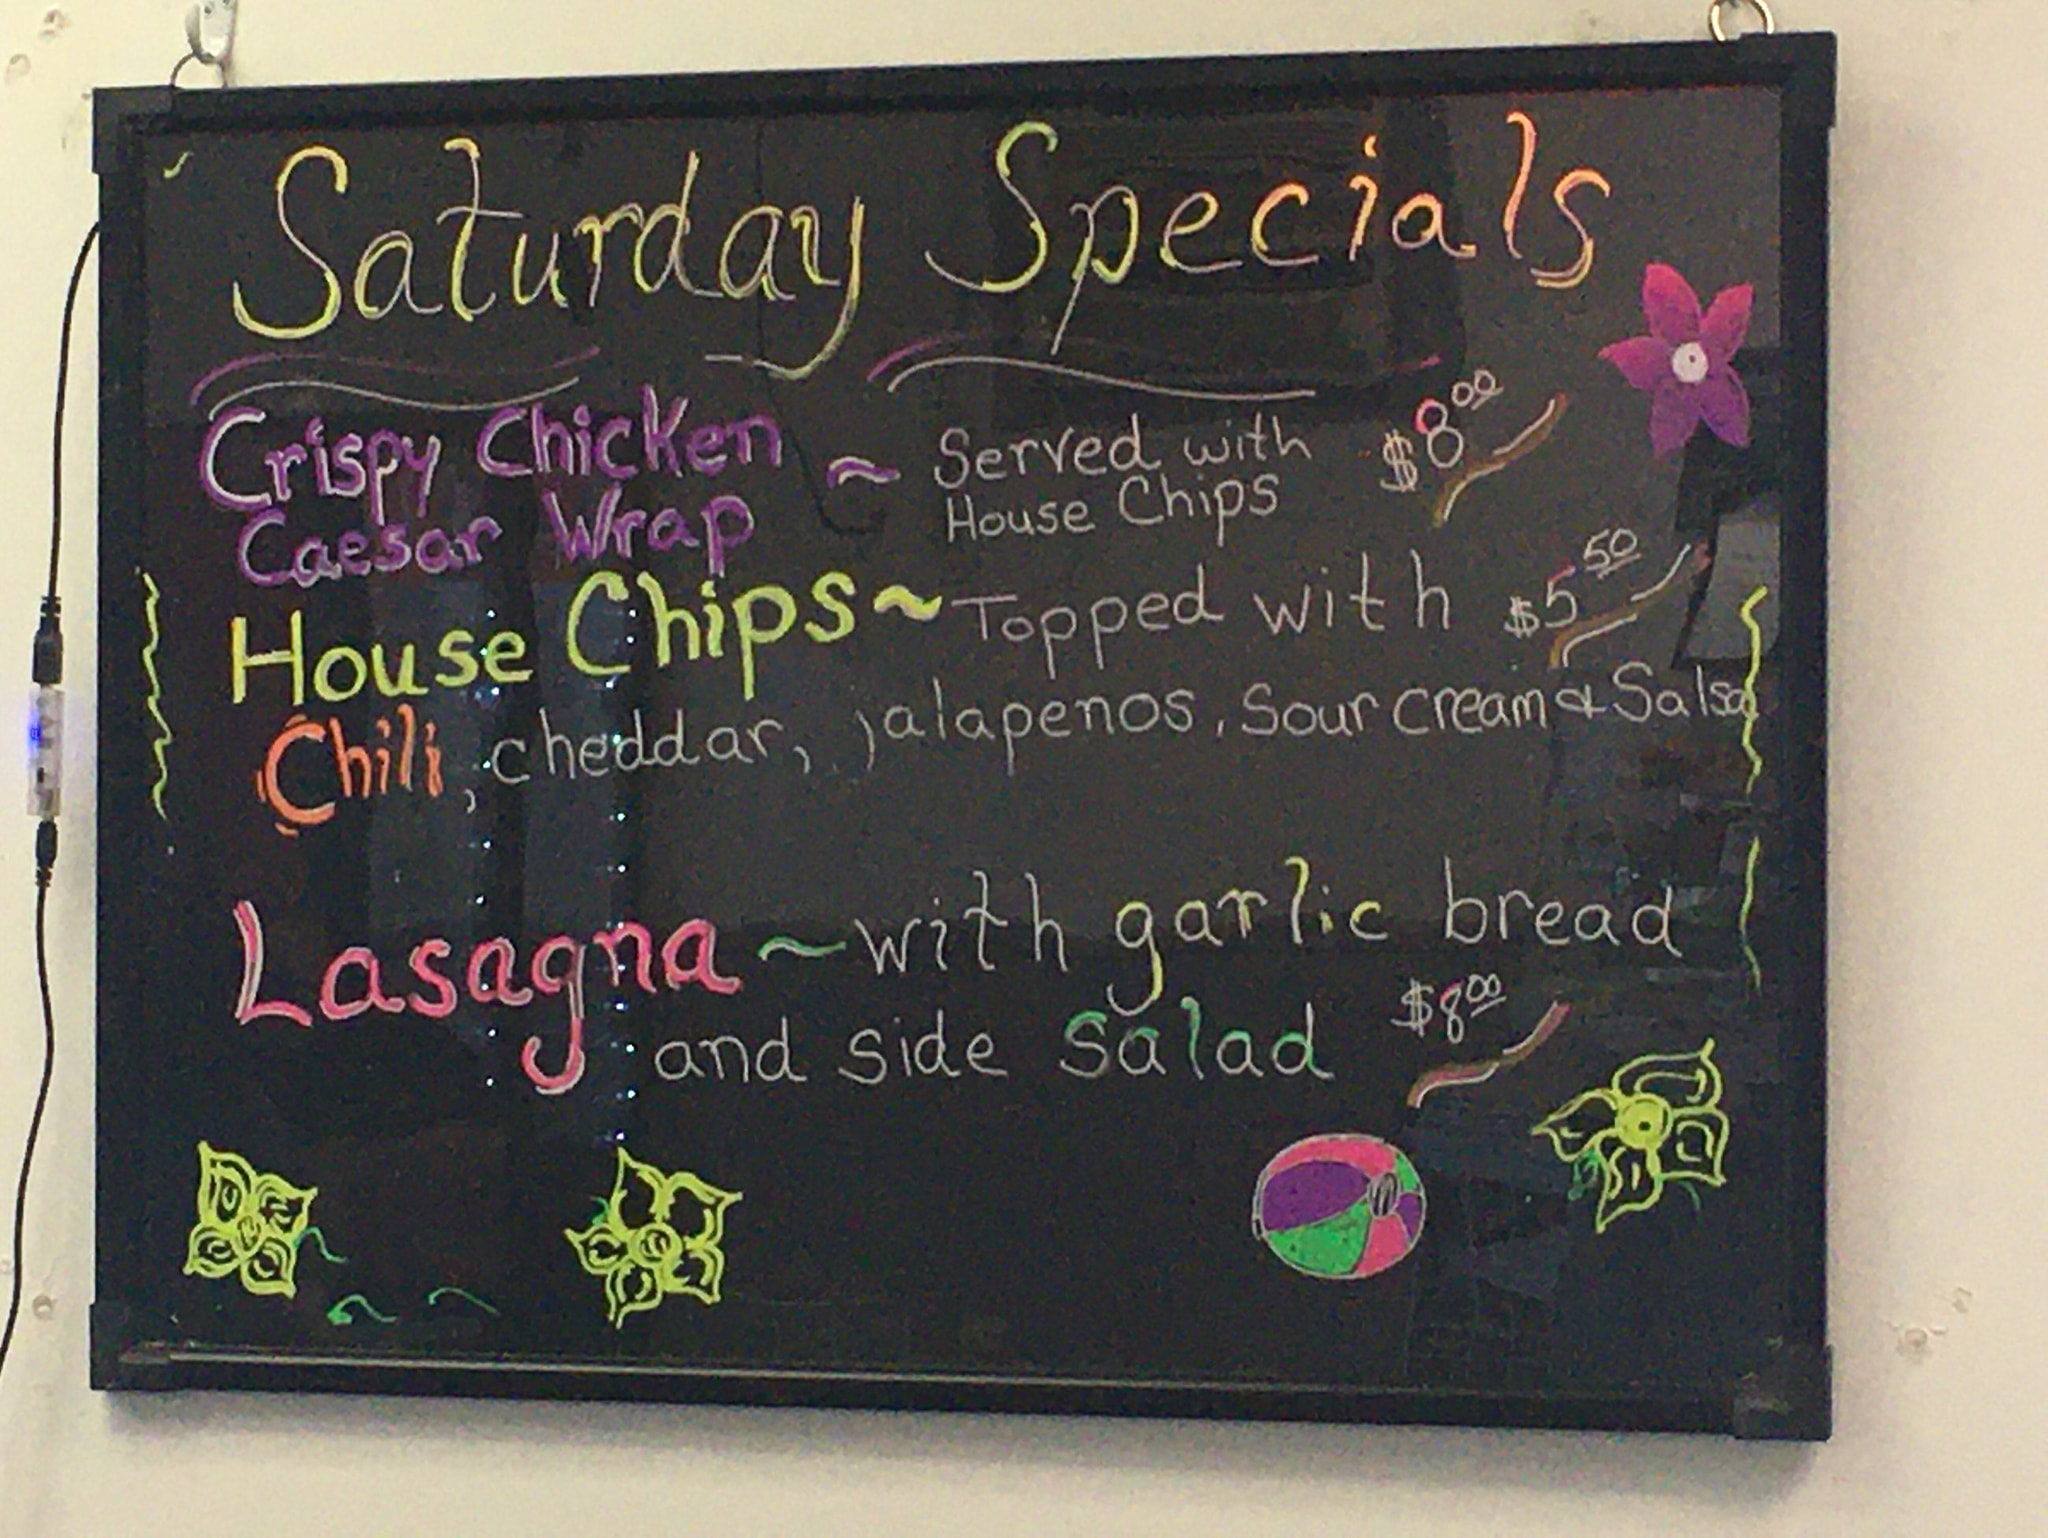 Saturday Specials
Crispy Chicken ~ Served with $8.00
Caesar Wrap House Chips
House Chips ~ Topped with $5.50
Chili, cheddar, jalapenos, Sour cream & Salsa
Lasagna ~ with garlic bread
and side Salad $8.00